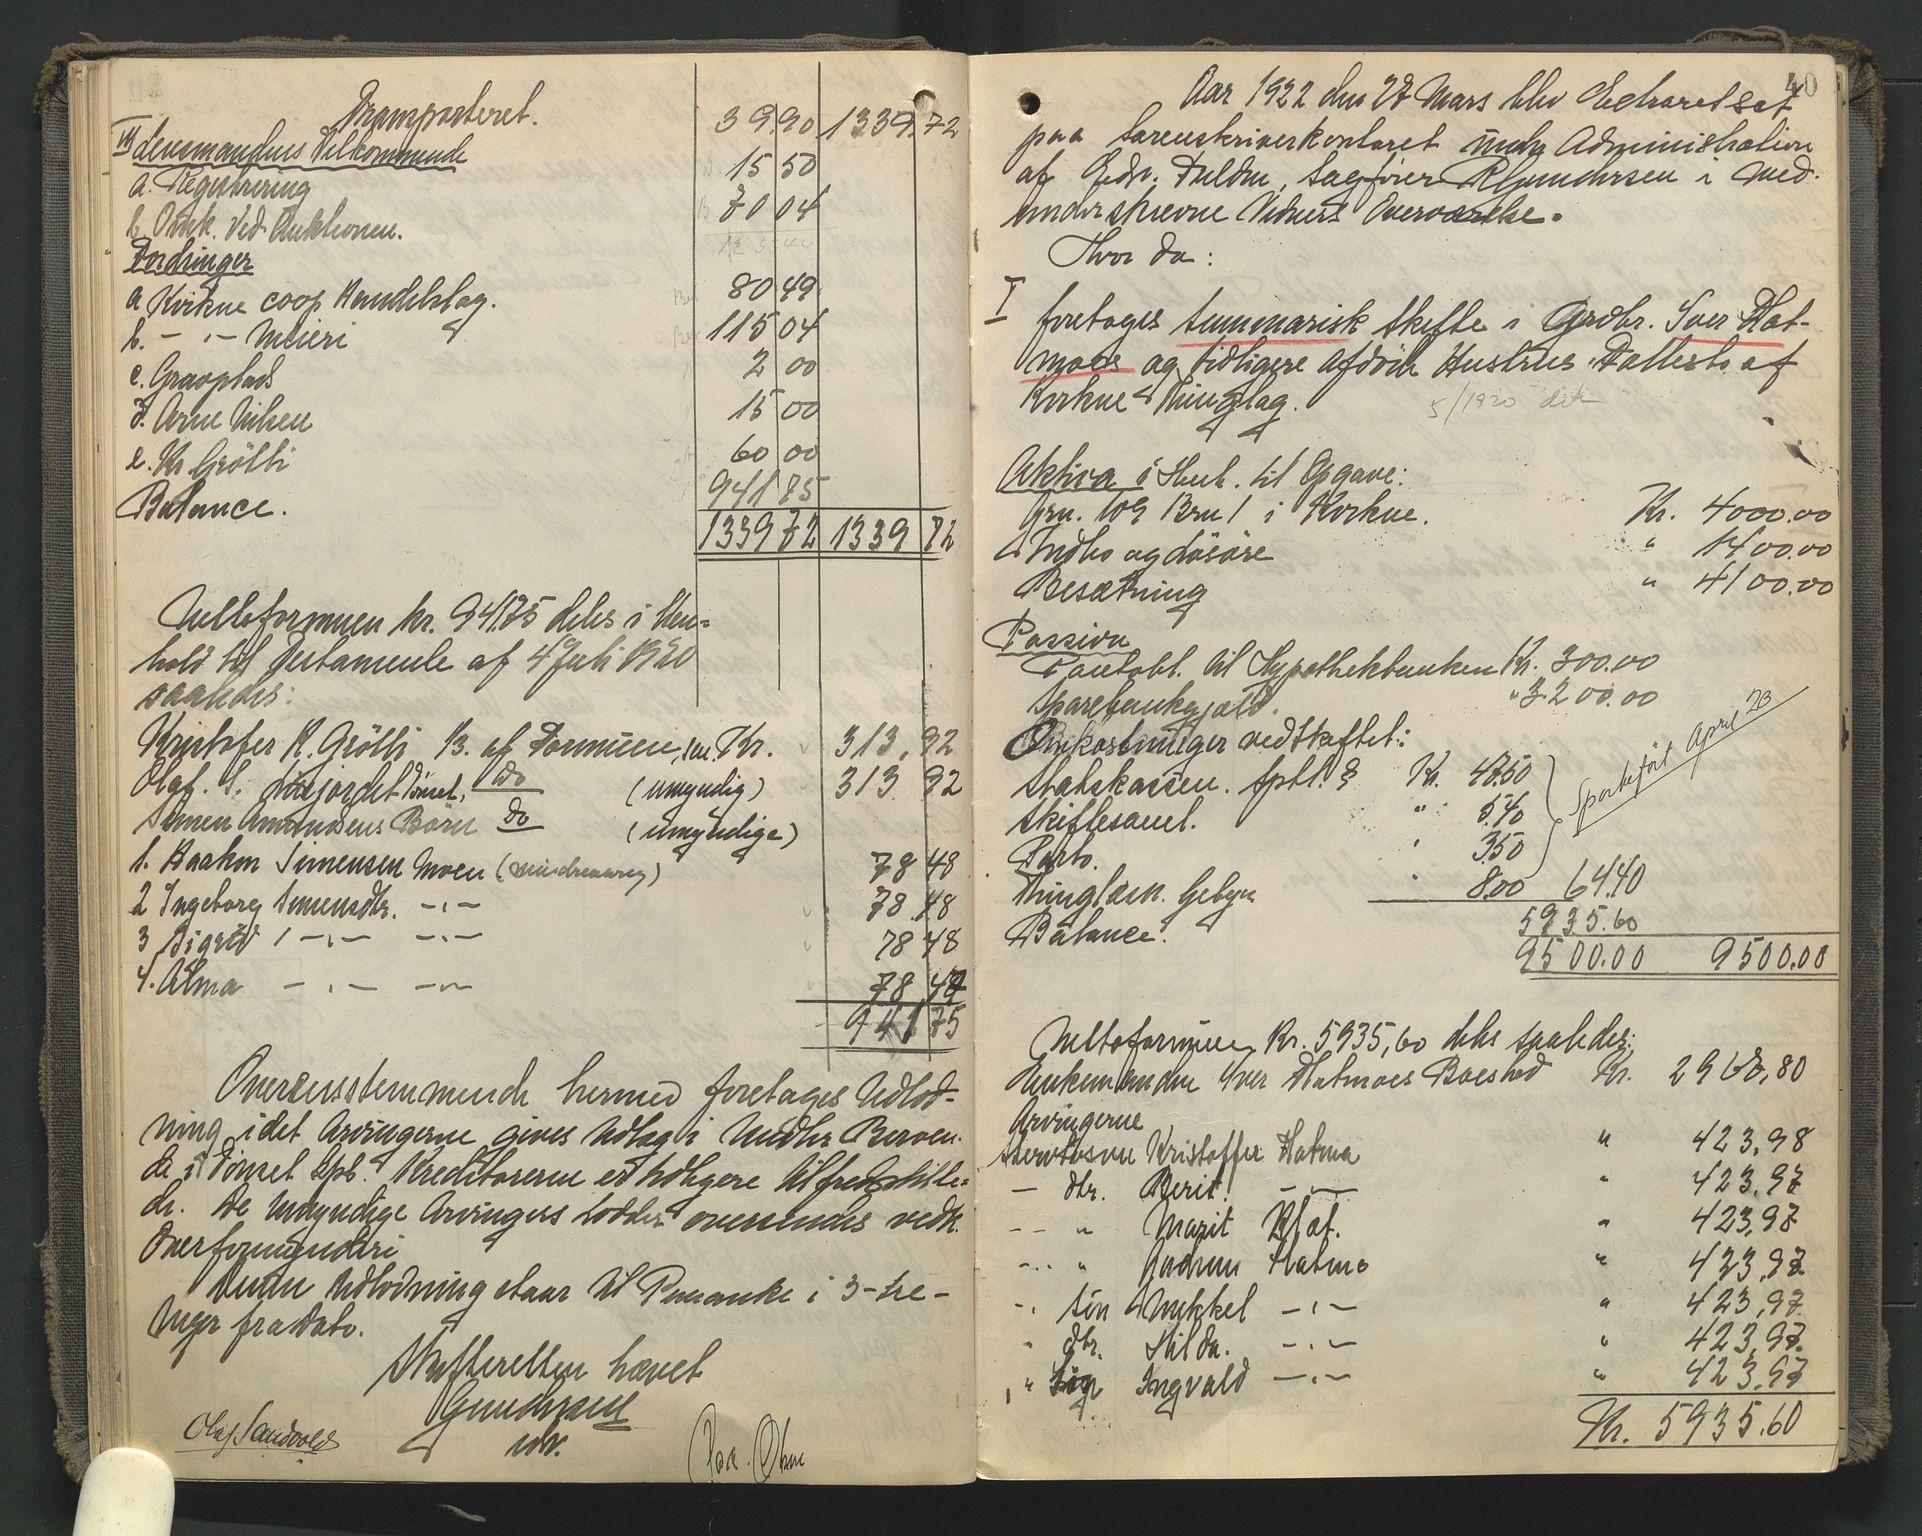 Transporteret. 39.90 1339.72
III Lensmandens Tilkommende
a. Registrering 15 50
b. Omk. ved Auktionen. 70 04
Fordringer
a Kvikne coop Handelslag. 80 49
b. - " - Meieri 115 04
c. Gravplads 2 00
d. Arne Nilsen 15 00
e. Kr Grötli 60 00
Balance. 941 75
1339 72 1339 72
Nettoformuen kr. 941.75 deles i Hen-
hold til Testamente af 4 Juli 1920
saaledes:
Kristofer K. Grötli 1/3. af Formuen, Kr. 313,92
Olaf. S. Tönset, do (umyndig) 313 92
Simen Amundsens Börn do (umyndige)
1. Haakon Simensen Moen (mindreaarig) 78 48
2 Ingeborg Simensdtr. - " - 78 48
3 Sigrid - " - - " - 78 48
4. Alma - " - - " - 78 47
941 75
Overensstemmende hermed foretages Udlod-
ning, idet Arvingerne gives Udlæg i Midler Beroen-
de i Tönset Spb. Kreditorerne er tidligere tilfredsstille-
de. De Umyndige Arvingers Lodder oversendes vedk.
Overformynderi
Denne Udlodning staar til Paaanke i 3-tre-
Uger fra Dato.
Skifteretten hævet
Gundersen
Olaf Sandvold
40
Aar 1922 den 27 Mars blev Skifteret sat
paa Sorenskriverkontoret under Administration
af Edsv. Fuldm, Sagförer R Gundersen i Med-
underskrevne Vidners Overværelse.
Hvor da:
I foretages summarisk Skifte i Grdbr. Iver Hat-
moes og tidligere afdöde Hustrus Fællesbo af
Kvikne Thinglag.
5/1920
Aktiva i Henh. til Opgave:
Grn. 109 Brn 1 i Kvikne. Kr. 4000.00
Indbo og Lösöre " 1400.00
Besætning " 4100.00
Passiva
Panteobl. til Hypothekbanken Kr. 300.00
Sparebankgjæld. " 3.200.00
Omkostninger ved Skiftet:
Statskassen. Kr. 47.50
Skiftesaml. " 5.40
Porto. " 3.50
Thinglæsn. Gebyr " 8.00 64.40
Sportefört April 23
Balance. 5935.60
9500.00 9500.00
Nettoformuen, Kr. 5935,60 deles saaledes:
Enkemanden Iver Hatmoes Boeslod Kr. 2967,80
Arvingerne
Kristoffer Hatmo " 423,98
- dtr. Berit. - " - " 423,97
- " Marit Hat. " 423,97
- " Gudrun Hatmo " 423,97
- " sön Mikkel - " - " 423,97
" dtr. Hilda. - " - " 423,97
" Sön Ingvald - " - " 423,97
Kr. 5935.60